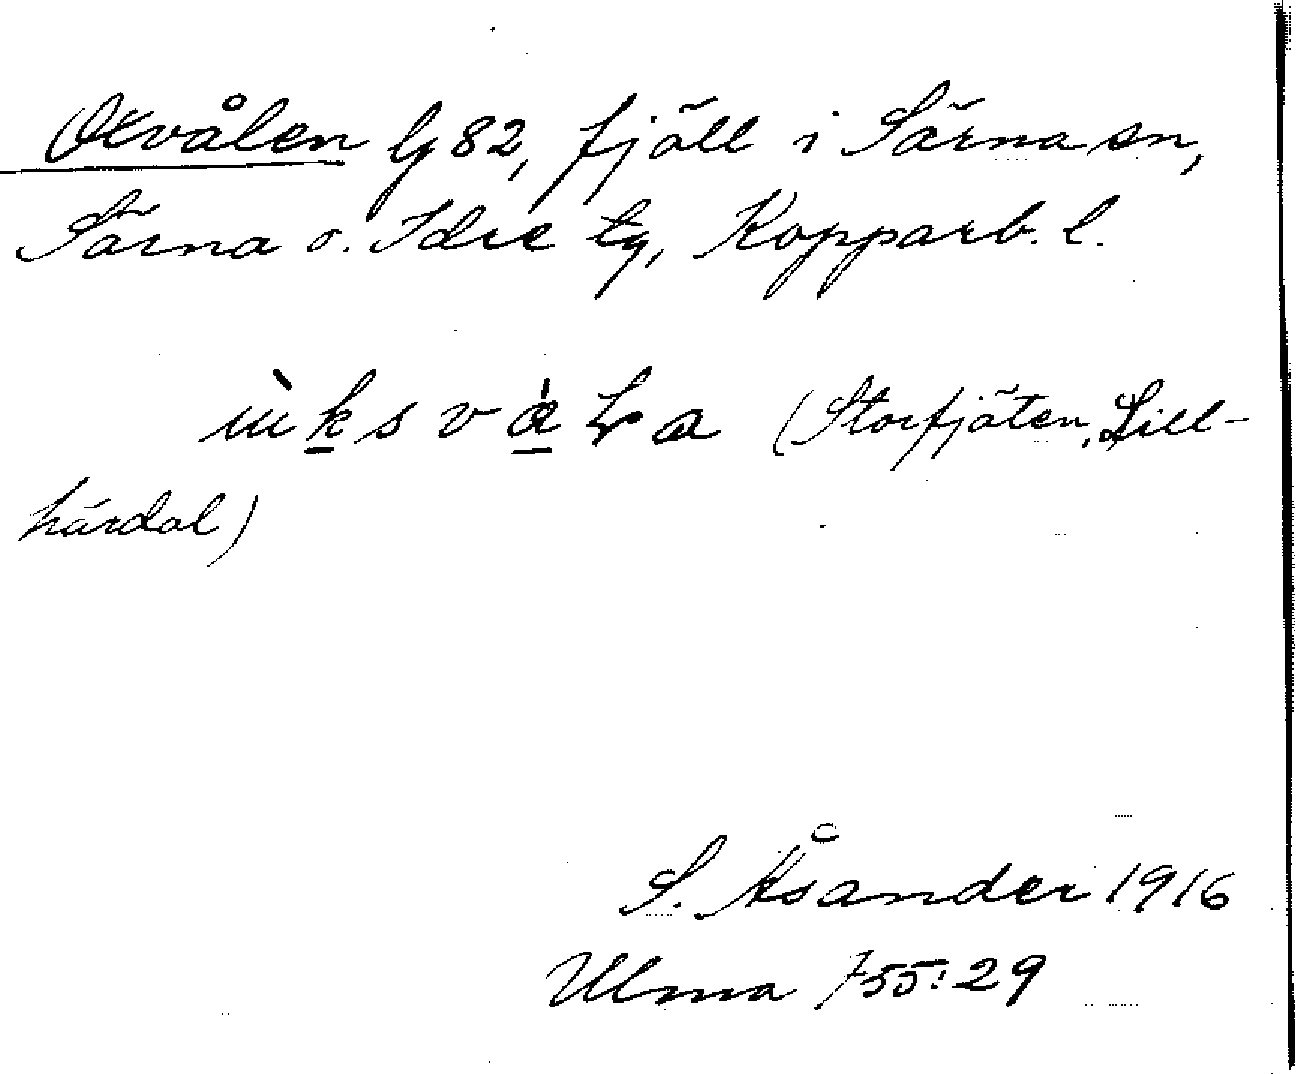 Oxvålen G 82, fjäll i Särna sn,
Särna o. Idre tg, Kopparb. l.
(Storfjäten, Lill-
härdal)
S. Åsander 1916
Ulma 755:29